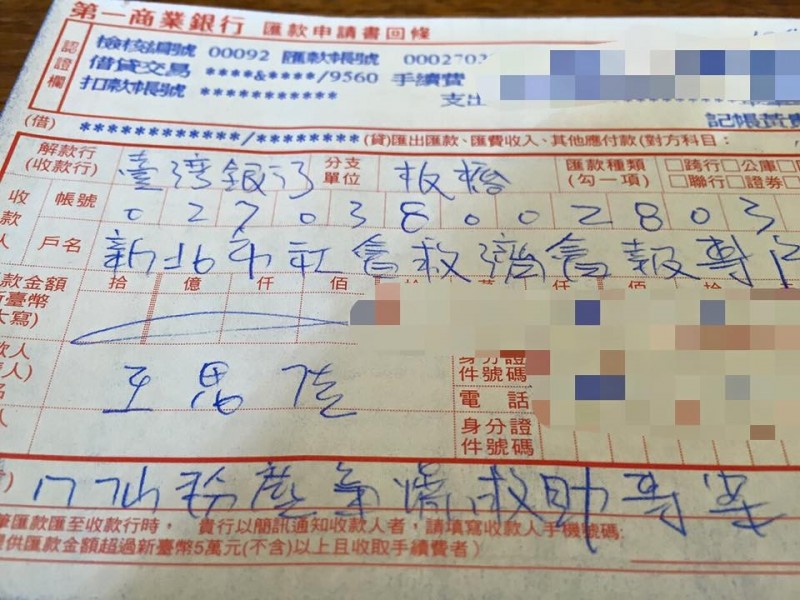 第一商業銀行 匯款申請書回條
認證欄
檢核編號 00092 匯款帳號 0002703
借貸交易 ****&****/9560 手續費
扣款帳號 ***********
支出
(借) ************/******** (貸)匯出匯款、匯費收入、其他應付款(對方科目:
解款行 (收款行) 臺灣銀行 分支單位 板橋 匯款種類 (勾一項) □跨行□公庫□
□聯行□證券□
收款人 帳號 0 2 7 0 3 8 0 0 2 8 0 3
戶名 新北市社會救濟會報專戶
款金額 臺幣 大寫) 拾 億 仟 佰 拾 萬 仟 佰 拾
王思
身分證件號碼
電話
身分證件號碼
八仙粉塵氣爆救助專案
筆匯款匯至收款行時, 貴行以簡訊通知收款人者,請填寫收款人手機號碼:
提供匯款金額超過新臺幣5萬元(不含)以上且收取手續費者)